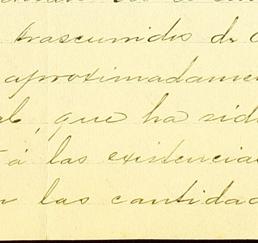 trascurridos de
aproximadamen
al, que ha sid
á las existencia
las cantidad